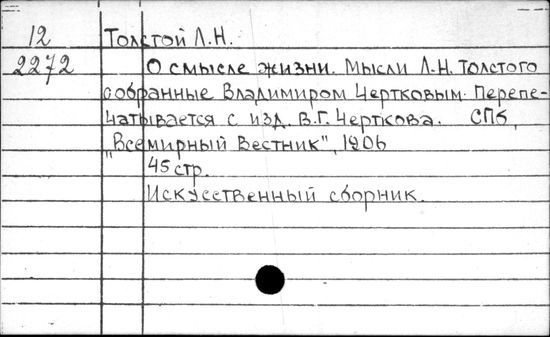 12 Толстой Л.Н.
2272 О смысле жизни. Мысли Л.Н. Толстого
собранные Владимиром Чертковым. Перепе-
чатывается с изд. В.Г. Черткова. СПб,
"Всемирный Вестник", 1906
45 стр.
Искусственный сборник.